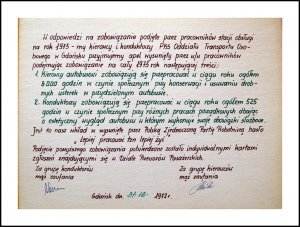 W odpowiedzi na zobowiązanie podjęte przez pracowników stacji obsługi
na rok 1973 - my kierowcy i konduktorzy PKS Oddziału Transportu Oso-
bowego w Gdańsku przyjmujemy apel wysunięty przez w/w pracowników
podejmując zobowiązanie na cały 1973 rok następującej treści:
1. Kierowcy autobusowi zobowiązują się przepracować w ciągu roku ogółem
8.000 godzin w czynie społecznym przy konserwacji i usuwaniu drob-
nych usterek w przydzielonym autobusie.
2. Konduktorzy zobowiązują się przepracować w ciągu roku ogółem 525
godzin w czynie społecznym przy różnych pracach porządkowych dbając
o estetyczny wygląd autobusu w którym wykonuje swoje obowiązki służbowe.
Jest to nasz wkład w wysunięte przez Polską Zjednoczoną Partię Robotniczą hasło
„Lepiej pracować ten lepiej żyć"
Podjęcie powyższego zobowiązania potwierdzone zostało indywidualnymi kartami
zgłoszeń znajdującymi się w Dziale Przewozów Pasażerskich.
Za grupę konduktorów
mąż zaufania
Za grupę kierowców
mąż zaufania
Gdańsk dn. 31.10. 1972r.